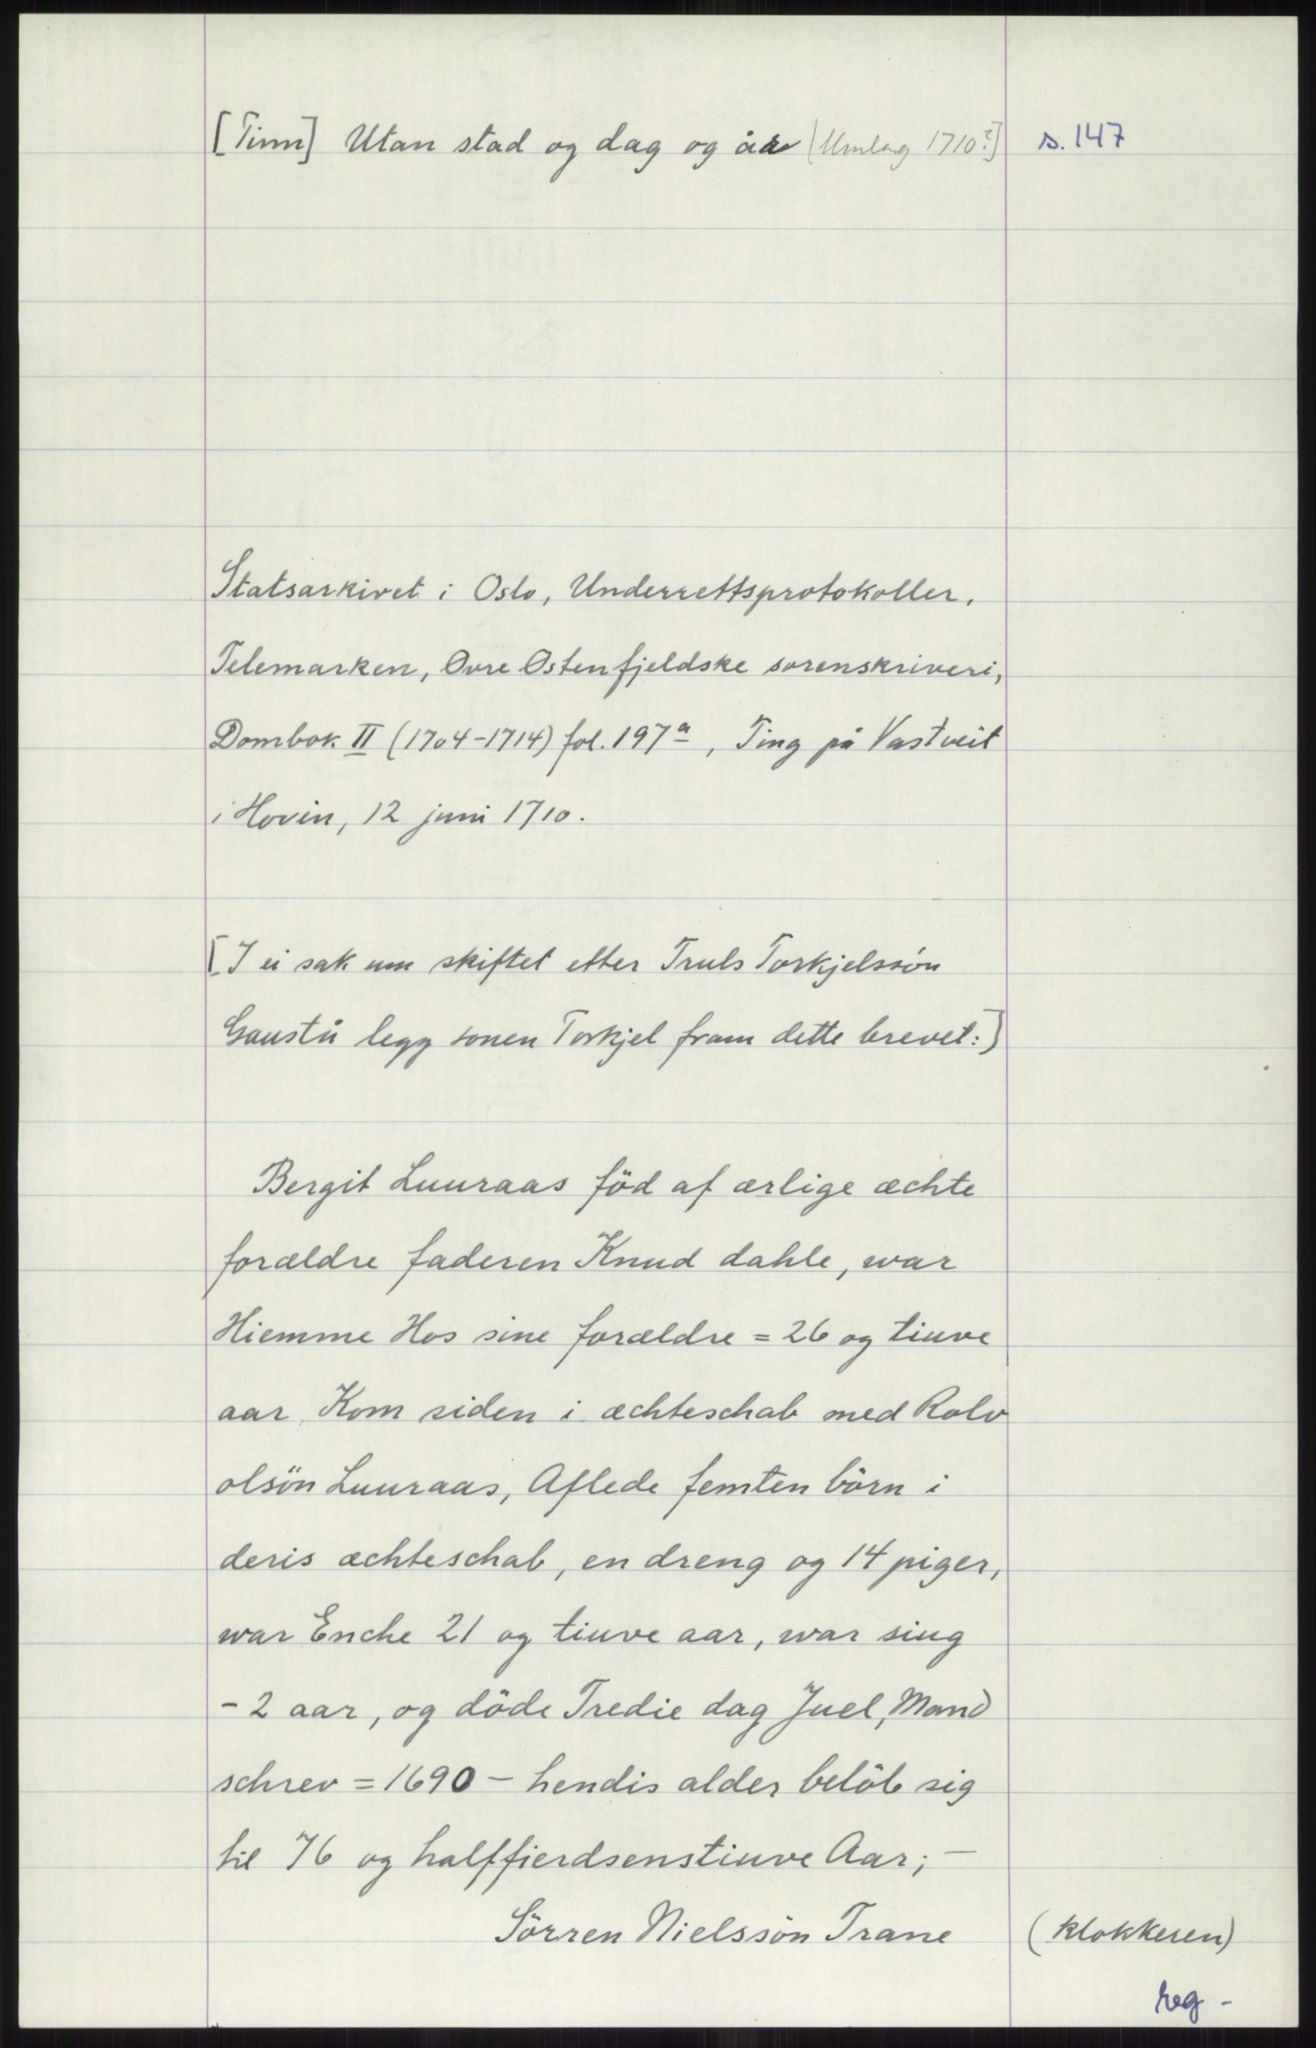 [Tinn] Utan stad og dag og år [Umlag 1710?] s. 147
Statsarkivet i Oslo, Underrettsprotokoller,
Telemarken, Øvre Østenfjeldske sorenskriveri,
Dombok II (1704-1714) fol. 197a, Ting på Vastveit
i Hovin, 12 juni 1710.
[I ei sak um skiftet etter Truls Torkjelssön
Gaustå legg sonen Torkjel fram dette brevet:]
Bergit Luuraas föd af ærlige æchte
forældre faderen Knud dahle, war
Hiemme Hos sine forældre = 26 og tiuve
aar, Kom siden i æchteschab med Rolv
olsön Luuraas, Aflede femten börn i
deris æchteschab, en dreng og 14 piger,
war Enche 21 og tiuve aar, war siug
- 2 aar, og döde Tredie dag Juel, Mand
schrev = 1690 - hendis alder belöb sig
til 76 og halffierdsenstiuve Aar; -
Sörren Nielssön Trane (klokkeren)
reg -